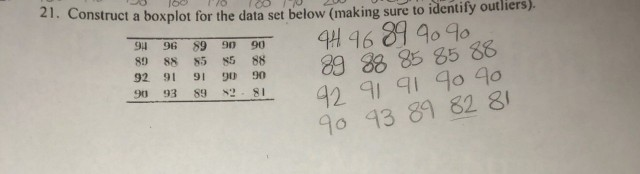 21. Construct a boxplot for the data set below (making sure to identify outliers).
94 96 89 90 90
88 85 85 88
92 91 91 90 90
90 93 89 82 81
94 96 89 90 90
89 88 85 85 88
92 91 91 90 90
90 93 89 82 81